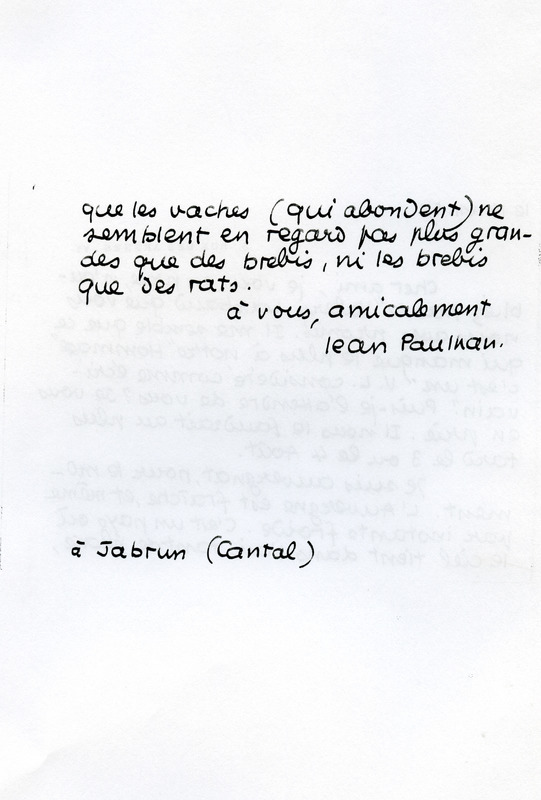 que les vaches (qui abondent) ne
semblent en regard pas plus gran-
des que des brebis, ni les brebis
que des rats.
à vous, amicalement
Jean Paulhan.
à Jabrun (Cantal)